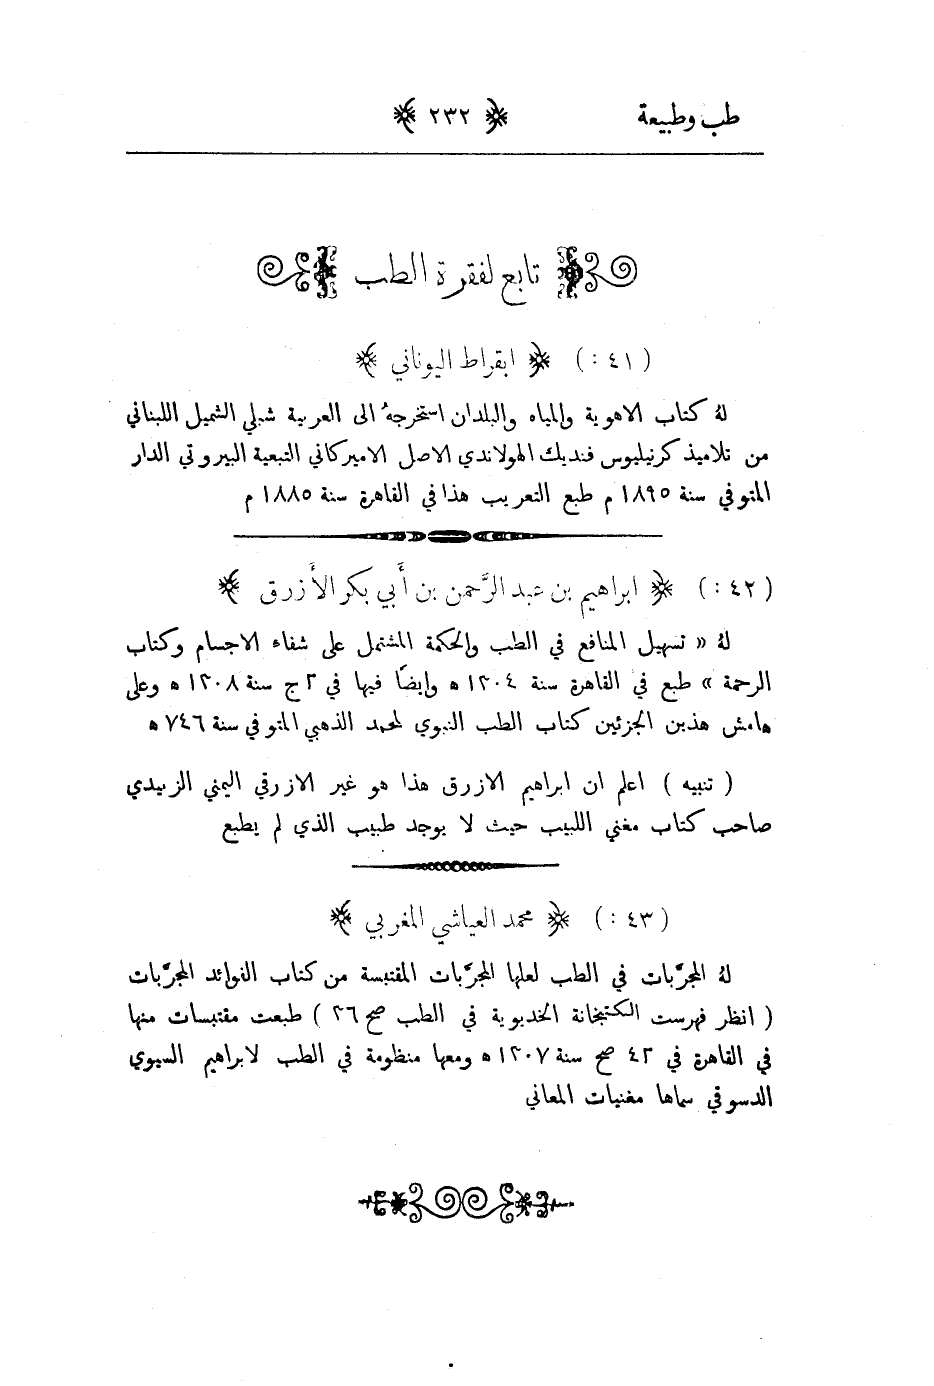 طب وطبيعة ﴿ ٢٣٢ ﴾
تابع لفقرة الطب
( ٤١ : ) ﴿ ابقراط اليوناني ﴾
لهُ كتاب الاهوية والمياه والبلدان استخرجهُ الى العربية شبلي الشميل اللبناني
من تلاميذ كرنيليوس فنديك الهولاندي الاصل الاميركاني التبعية البيروتي الدار
المتوفي سنة ١٨٩٥ م طبع التعريب هذا في القاهرة سنة ١٨٨٥ م
( ٤٢ : ) ﴿ ابراهيم بن عبد الرَّحمن بن أَبي بكر الأَزرق ﴾
لهُ « تسهيل المنافع في الطب والحكمة المشتمل على شفاء الاجسام وكتاب
الرحمة » طبع في القاهرة سنة ١٣٠٤ ه وايضًا فيها في ٢ ج سنة ١٣٠٨ ه وعلى
هامش هذين الجزئين كتاب الطب النبوي لمحمد الذهبي المتوفي سنة ٧٤٦ ه
( تنبيه ) اعلم ان ابراهيم الازرق هذا هو غير الازرقي اليمني الزبيدي
صاحب كتاب مغني اللبيب حيث لا يوجد طبيب الذي لم يطبع
( ٤٣ : ) ﴿ محمد العياشي المغربي ﴾
لهُ المجرَّبات في الطب لعلها المجرَّبات المقتبسة من كتاب الفوائد المجرَّبات
( انظر فهرست الكتبخانة الخديوية في الطب صح ٢٦ ) طبعت مقتبسات منها
في القاهرة في ٤٣ صح سنة ١٣٠٧ ه ومعها منظومة في الطب لابراهيم السيوي
الدسوقي سماها مغنيات المعاني